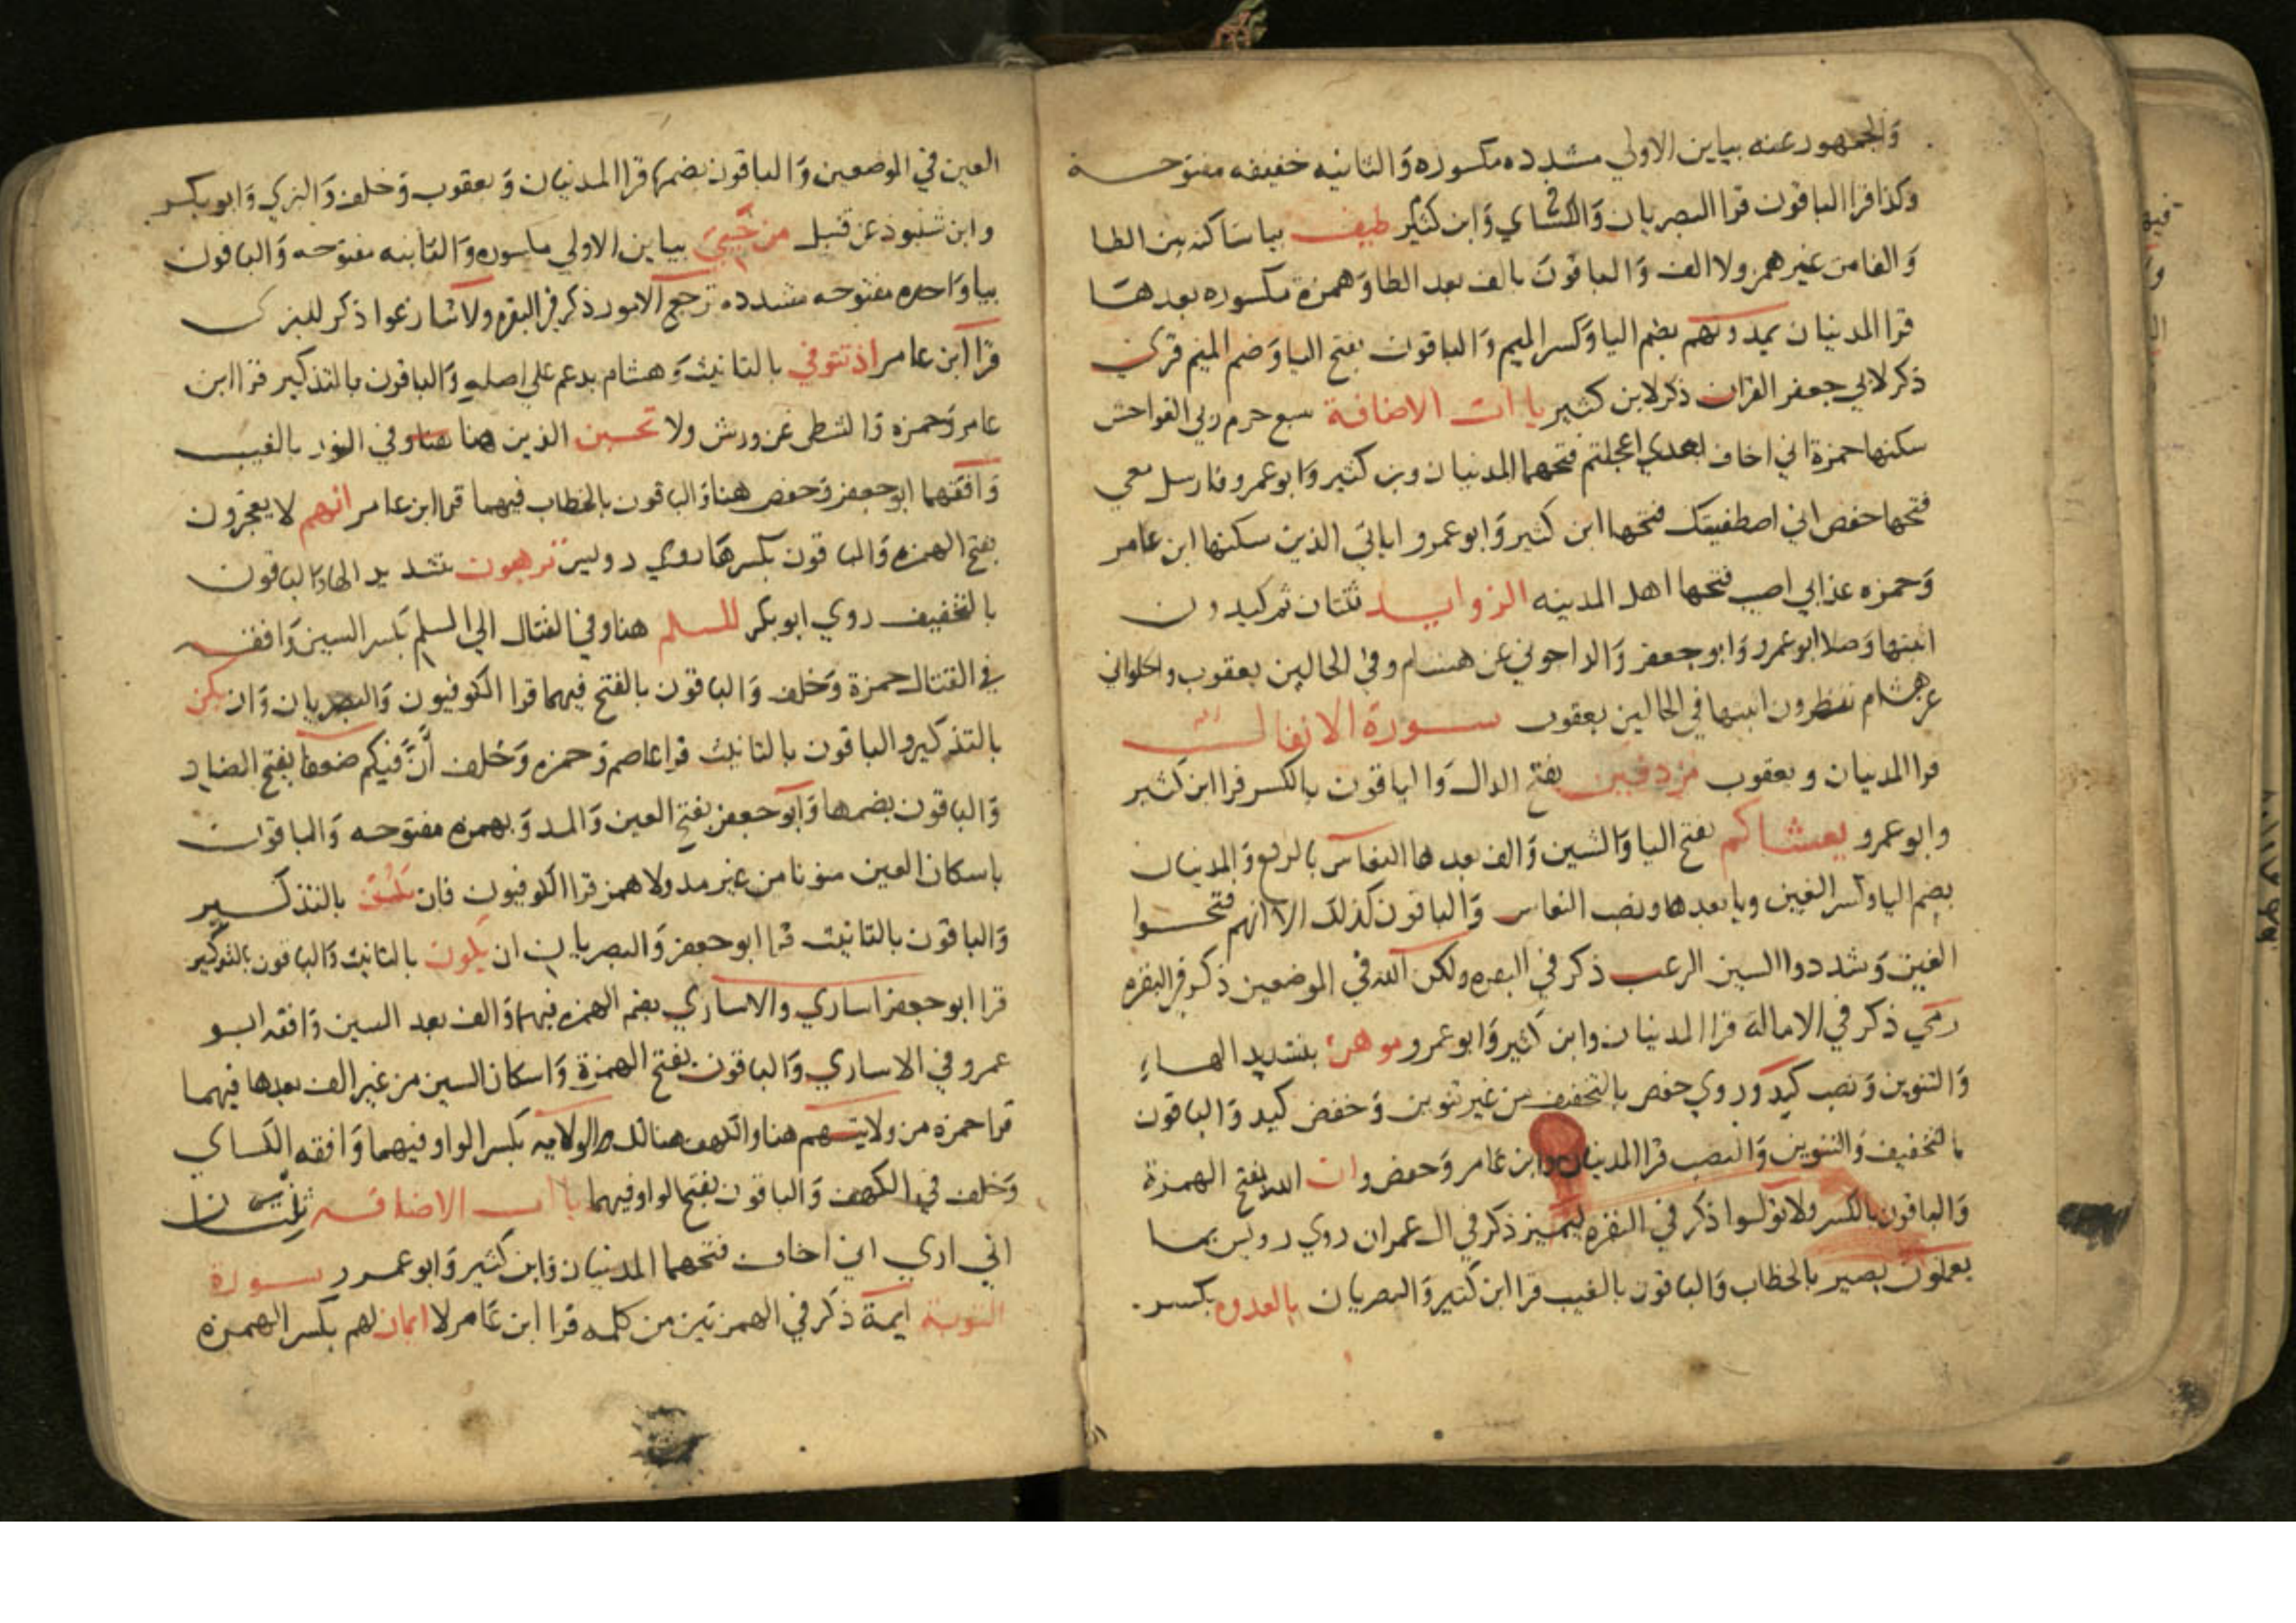 والجمهور عنه بياين الاولي مشدده مكسوره والثانيه خفيفه مفتوحة
وكذا قرا الباقون قرا البصريان والكسائي وابن كثير طيف بيا ساكنه بين الطا
والفا من غير همز ولا الف والباقون بالف بعد الطا وهمزة مكسوره بعدها
قرا المدنيان يمدونهم بضم اليا وكسر الميم والباقون بفتح اليا وضم الميم قري
ذكر لابي جعفر القران ذكر لابن كثير ياات الاضافة سبع حرم ربي الفواحش
سكنها حمزة اني اخاف بعدي اعجلتم فتحهما المدنيان وبن كثير وابو عمرو فارسل معي
فتحها حفص اني اصطفيتك فتحها ابن كثير وابو عمرو اياتي الذين سكنها ابن عامر
وحمزه عذابي اصيب فتحها اهل المدينه الزوايد ثنتان ثم كيدون
اثبتها وصلا ابو عمرو وابو جعفر والداجوني عن هشام وفي الحالين يعقوب والحلواني
عن هشام تنظرون اثبتها في الحالين يعقوب سورة الانفال
قرا المدنيان ويعقوب مردفين بفتح الدال والباقون بالكسر قرا ابن كثير
وابو عمرو يغشاكم بفتح اليا والشين والف بعدها النعاس بالرفع والمدنيان
بضم اليا وكسر الغين ويا بعدها ونصب النعاس والباقون كذلك الا انهم فتحوا
الغين وشددوا السين الرعب ذكر في البقره ولكن الله في الموضعين ذكر في البقره
رمي ذكر في الامالة قرا المدنيان وابن كثير وابو عمرو موهن بتشديد الهاء
والتنوين ونصب كيد وروي حفص بالتخفيف من غير تنوين وخفض كيد والباقون
بالتخفيف والتنوين والنصب قرا المدنيان وابن عامر وحفص وان الله بفتح الهمزة
والباقون بالكسر ولا تولوا ذكر في البقره ليميز ذكر في ال عمران روي رويس بما
يعملون بصير بالخطاب والباقون بالغيب قرا ابن كثير والبصريان بالعدوه بكسر
العين في الموضعين والباقون بضمها قرا المدنيان ويعقوب وخلف والبزي وابو بكر
وابن شنبوذ عن قنبل من حيي بياين الاولي مكسوره والثانيه مفتوحه والباقون
بيا واحده مفتوحه مشدده ترجع الامور ذكر في البقره ولا تنازعوا ذكر للبزي
قرا ابن عامر اذ تتوفي بالتانيث وهشام يدغم علي اصله والباقون بالتذكير قرا ابن
عامر وحمزه والشطي عن ورش ولا تحسبن الذين هنا وفي النور بالغيب
وافقهما ابو جعفر وحفص هنا والباقون بالخطاب فيهما قرا ابن عامر انهم لا يعجزون
بفتح الهمزه والباقون بكسرها روي رويس ترهبون بتشديد الها والباقون
بالتخفيف روي ابو بكر للسلم هنا وفي القتال الي السلم بكسر السين وافقه
في القتال حمزة وخلف والباقون بالفتح فيهما قرا الكوفيون والبصريان وان يكن
بالتذكير والباقون بالتانيث قرا عاصم وحمزه وخلف ان فيكم ضعفا بفتح الضاد
والباقون بضمها وابو جعفر بفتح العين والمد وبهمزه مفتوحه والباقون
باسكان العين منونا من غير مد ولا همز قرا الكوفيون فان يكن بالتذكير
والباقون بالتانيث قرا ابو جعفر والبصريان ان يكون بالتانيث والباقون بالتذكير
قرا ابو جعفر اساري والاساري بضم الهمزه فيهما والف بعد السين وافقه ابو
عمرو في الاساري والباقون بفتح الهمزة واسكان السين من غير الف بعدها فيهما
قرا حمزه من ولايتهم هنا والكهف هنالك الولايه بكسر الواو فيهما وافقه الكساي
وخلف في الكهف والباقون بفتح الواو فيهما ياات الاضافه ثنتان
اني اري اني اخاف فتحهما المدنيان وابن كثير وابو عمرو سورة
التوبة ايمة ذكر في الهمزتين من كلمه قرا ابن عامر لا ايمان لهم بكسر الهمزه